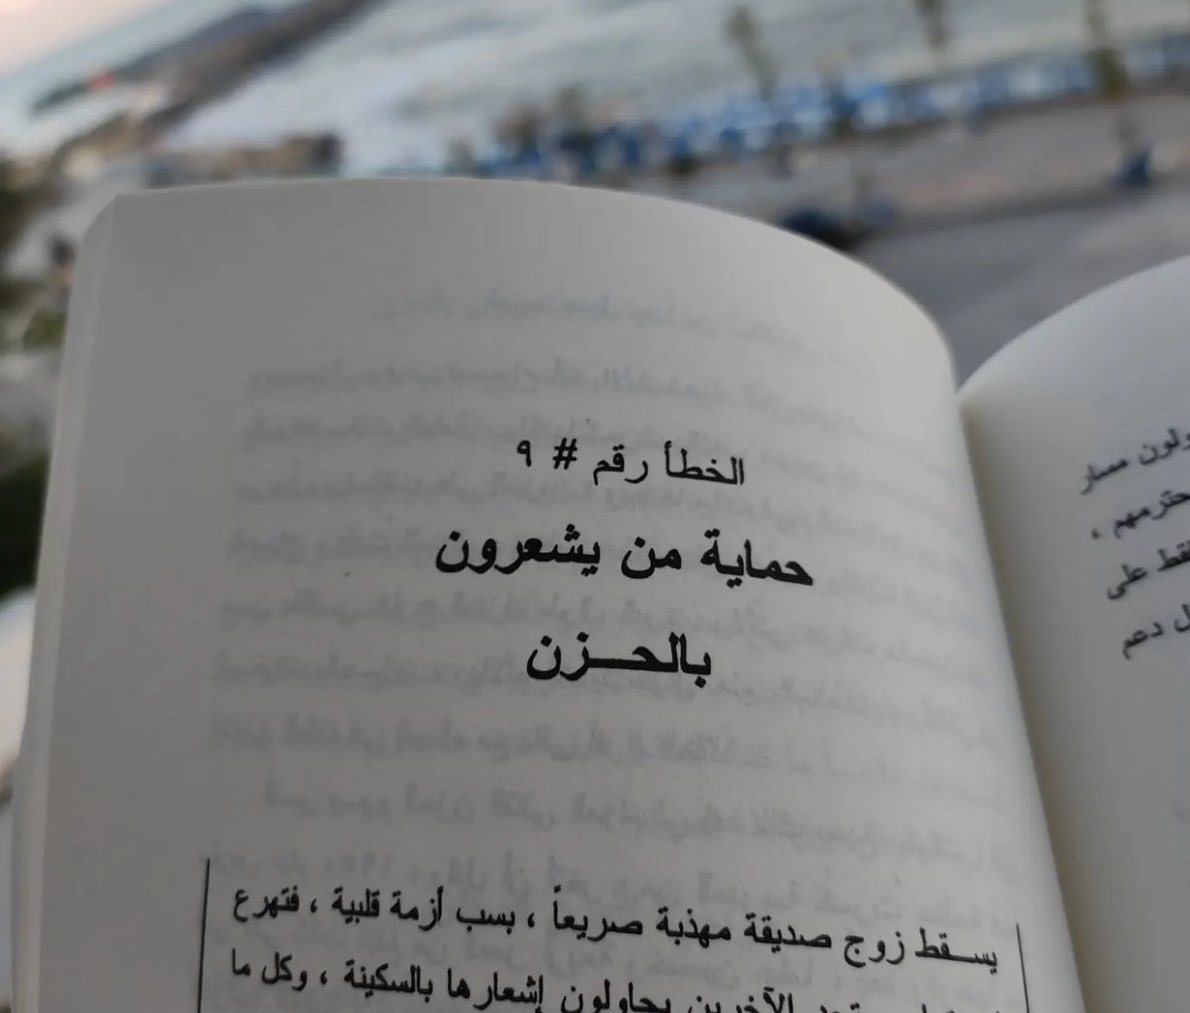 الخطأ رقم # ٩
حماية من يشعرون
بالحـــزن
يســقط زوج صديقة مهذبة صريعاً ، بسب أزمة قلبية ، فتهرع
الآخرين يحاولون إشعارها بالسكينة ، وكل ما
ولون مسار
حترمهم ،
على
دعم